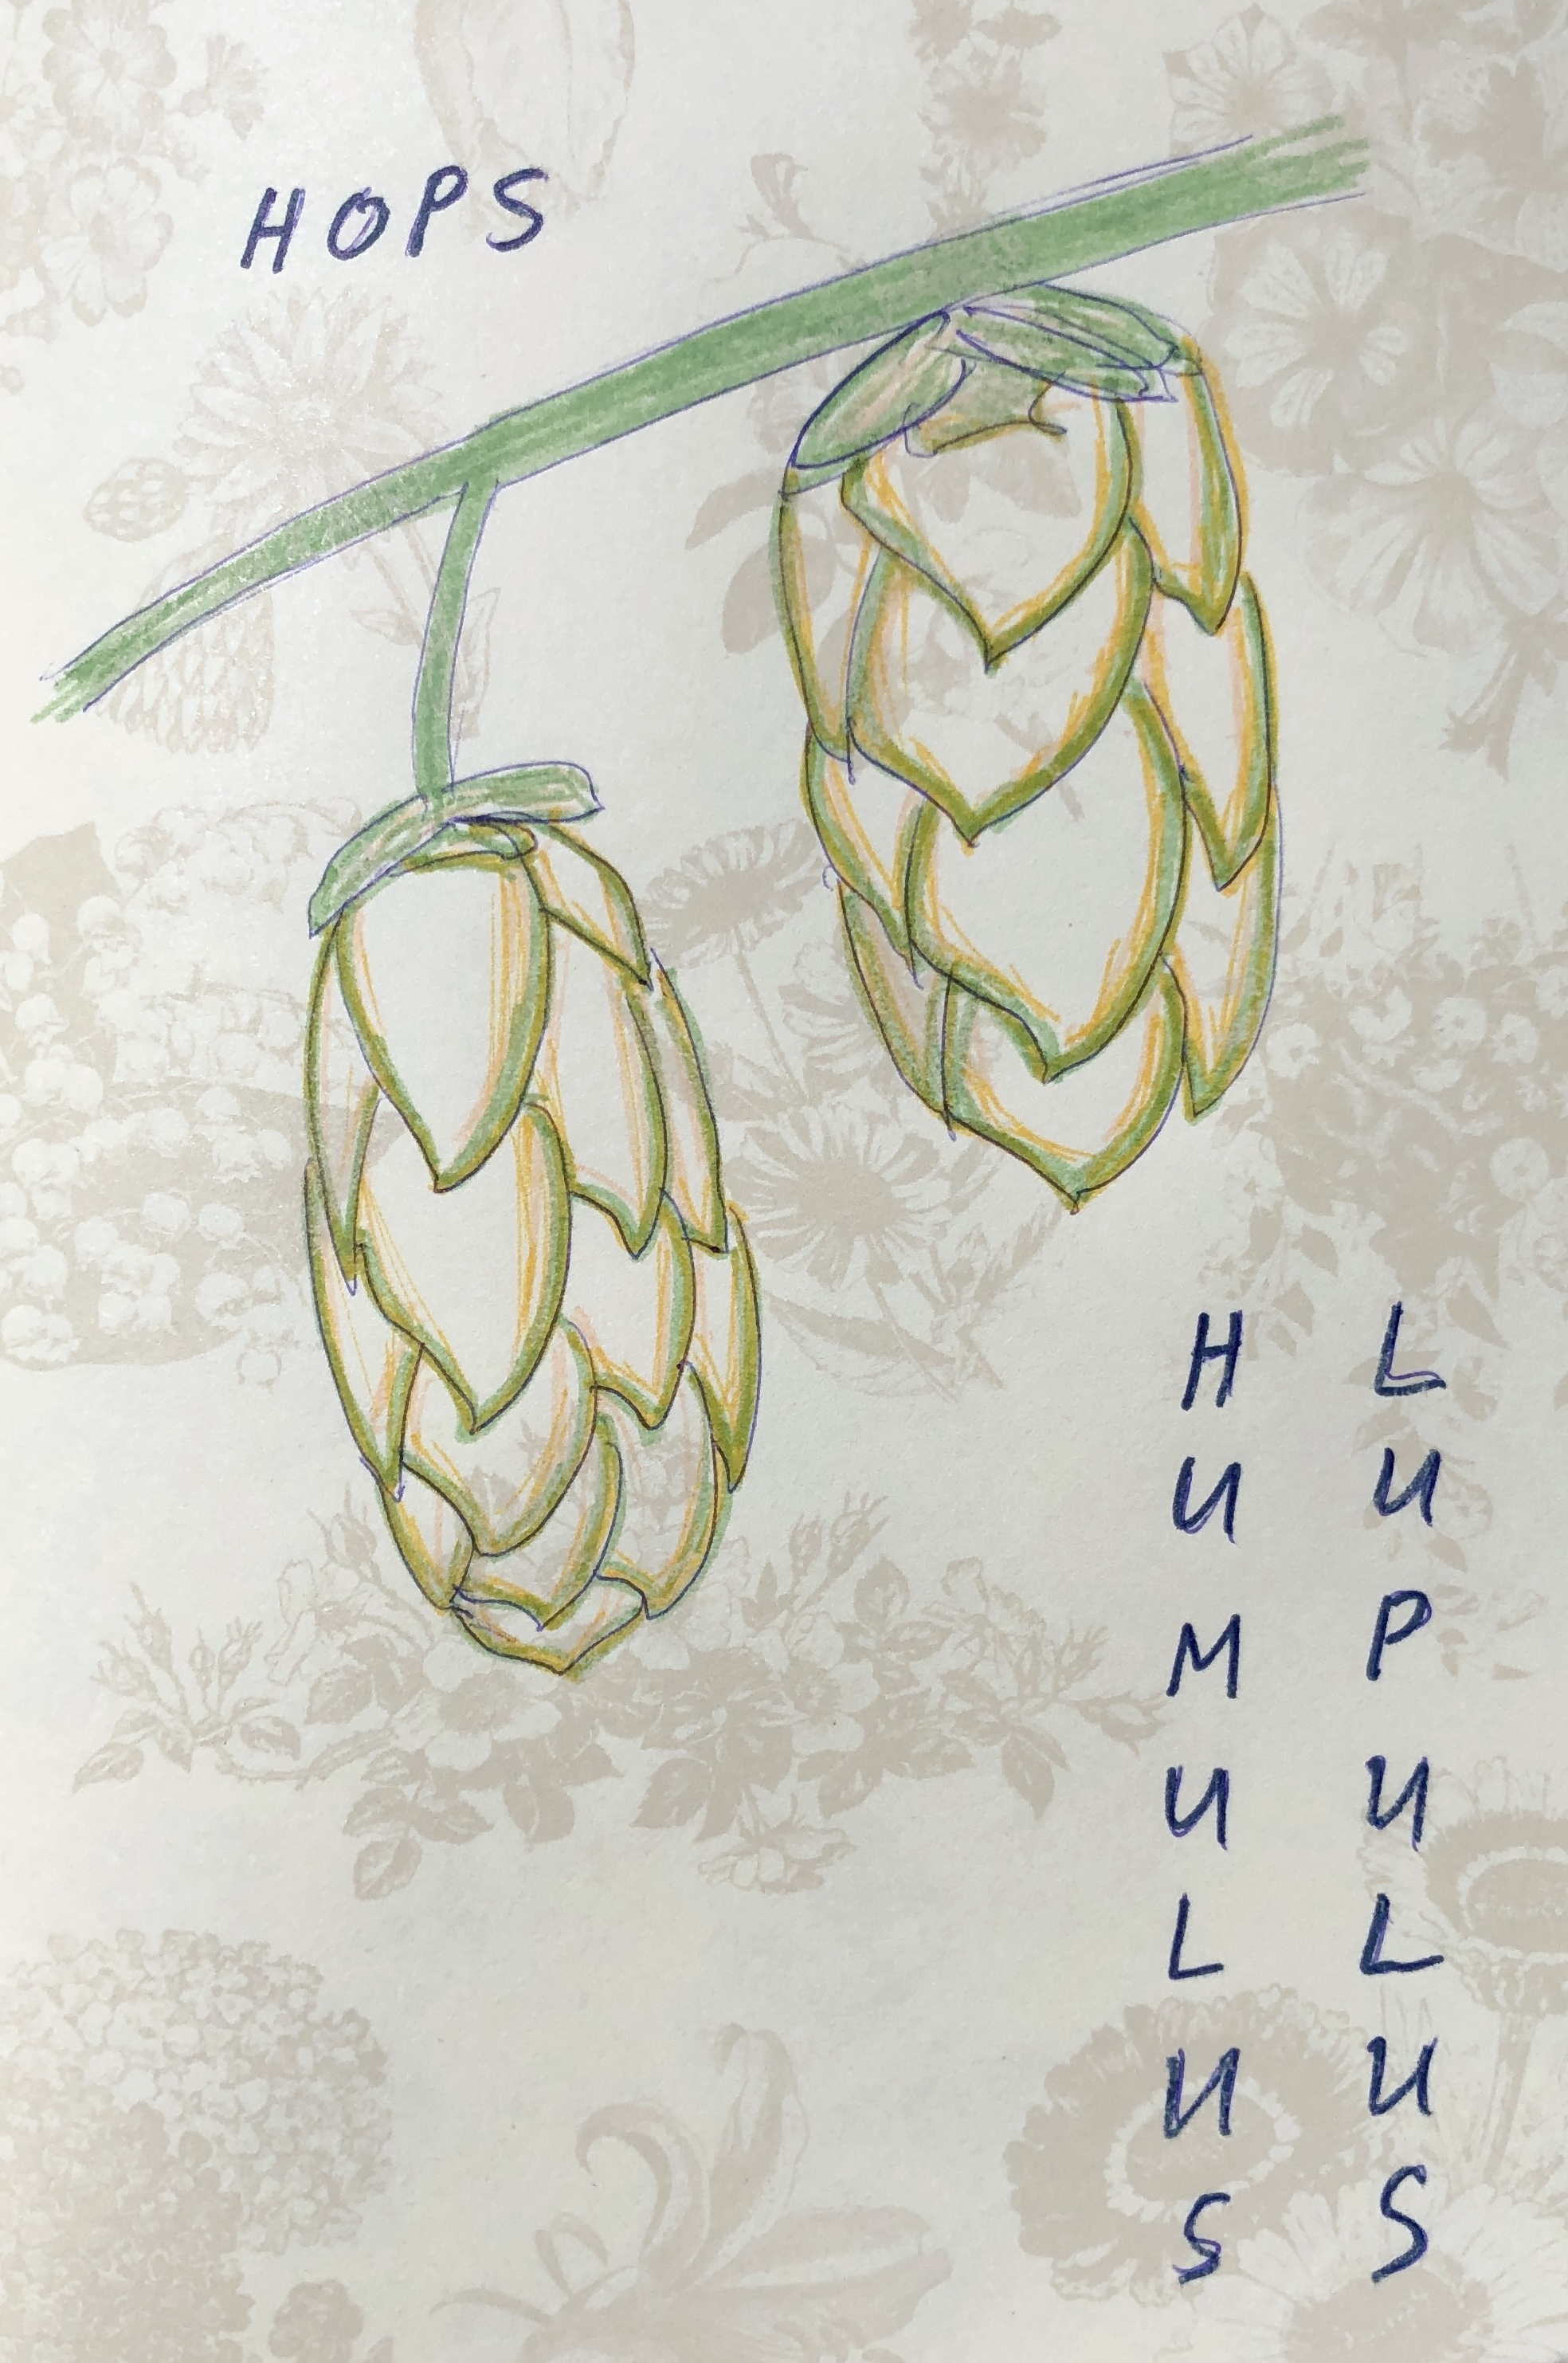 HOPS
HUMULUS
LUPULUS